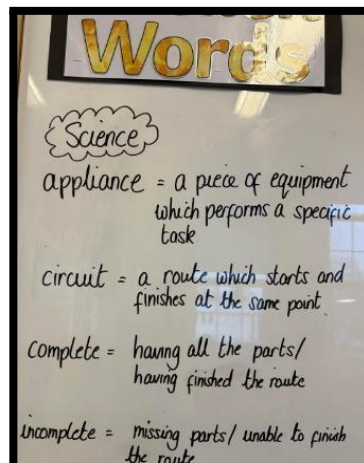 Words
Science
appliance = a piece of equipment
which performs a specific
task
circuit = a route which starts and
finishes at the same point
complete = having all the parts/
having finished the route
incomplete = missing parts/ unable to finish
the route